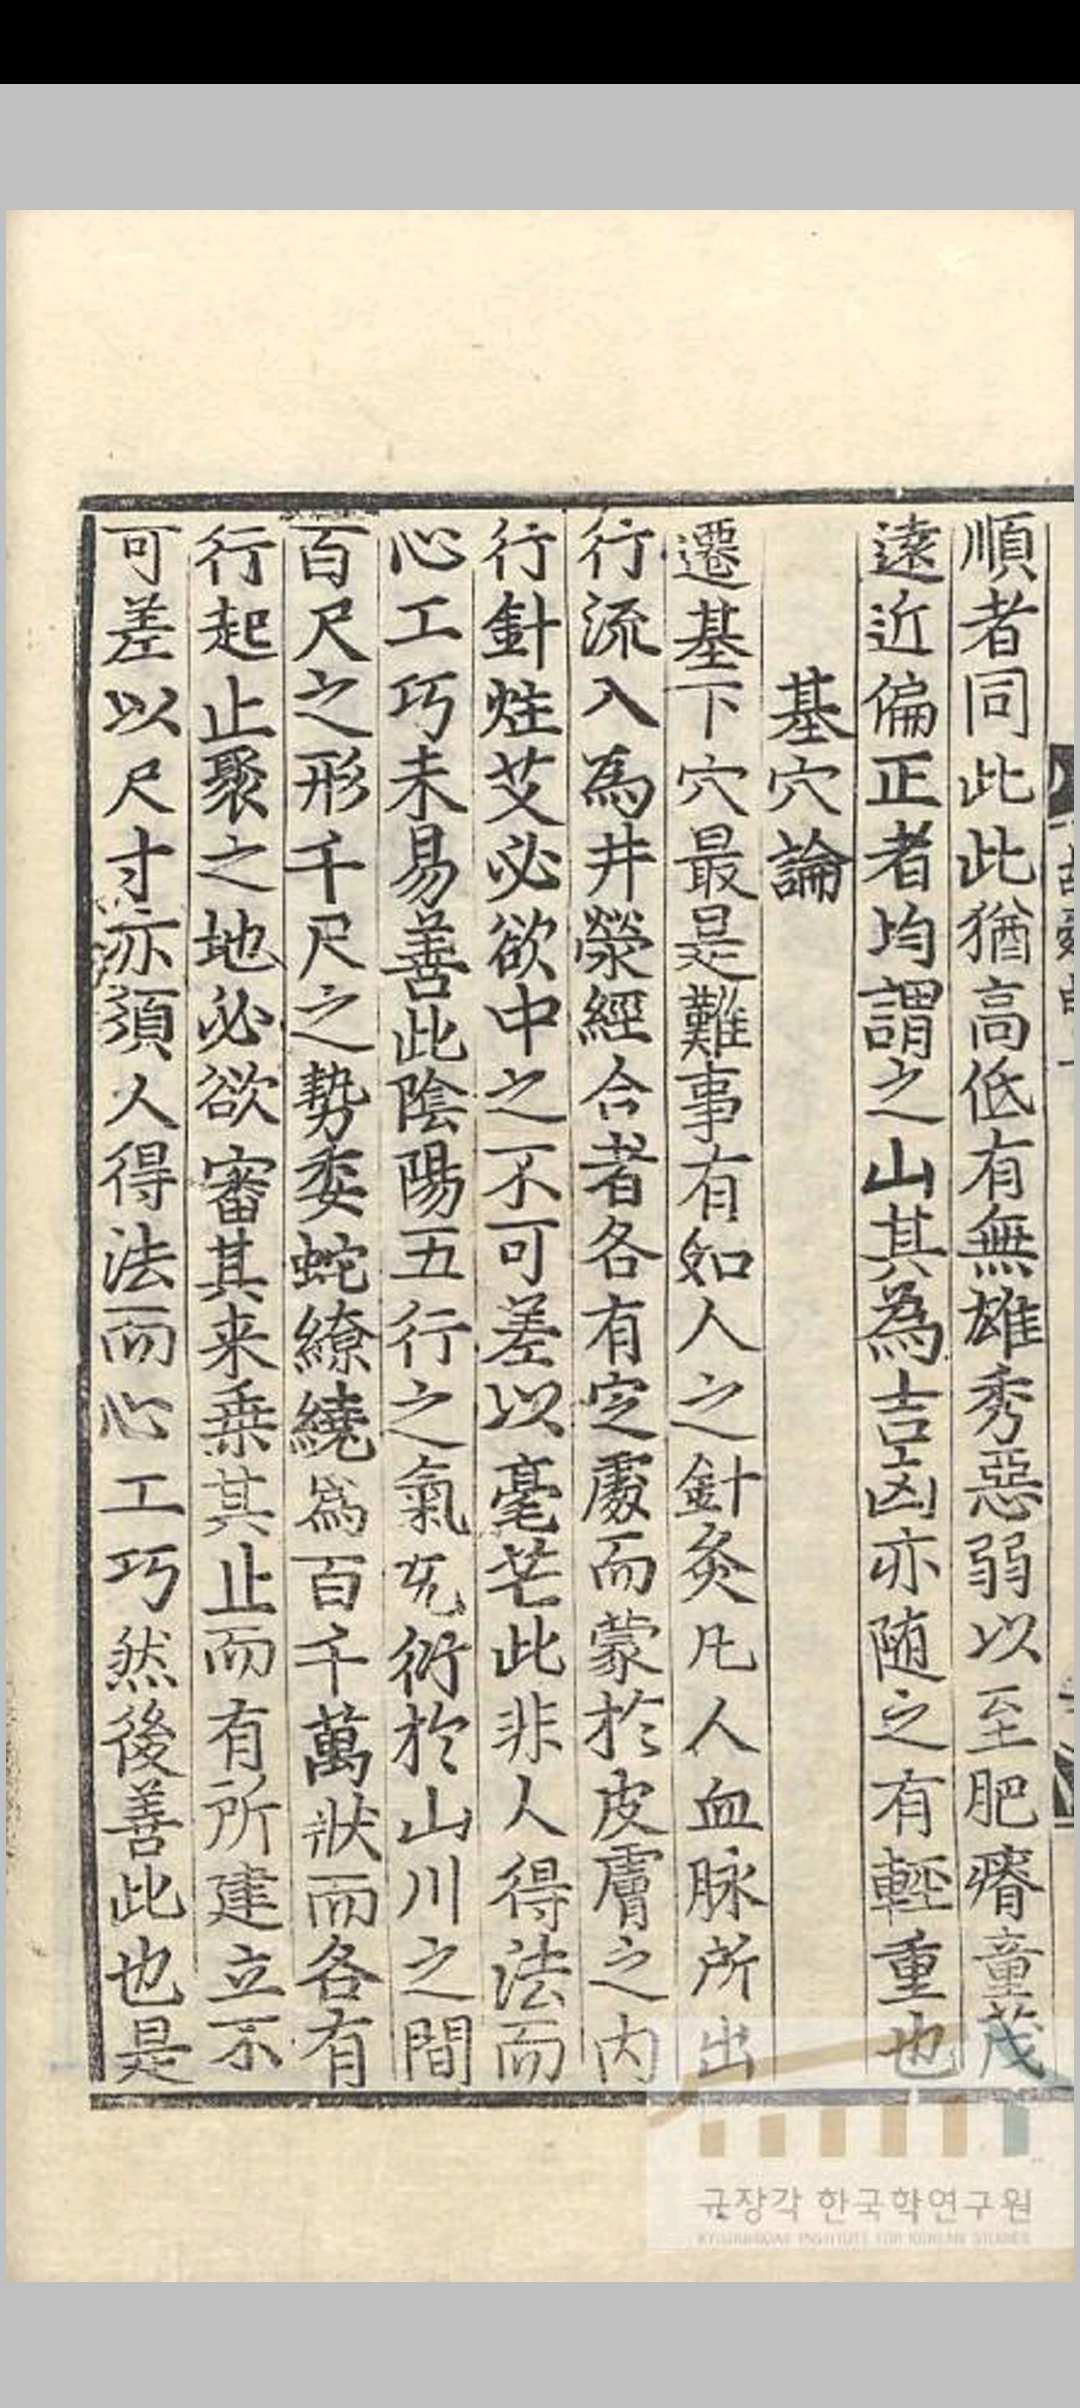 順者同此此猶高低有無雄秀惡弱以至肥瘠童茂
遠近偏正者均謂之山其為吉凶亦随之有輕重也
基穴論
遷基下穴最是難事有如人之針灸凡人血脉所出
行流入為井滎經合者各有定處而蒙於皮膚之内
行針炷艾必欲中之不可差以毫芒此非人得法而
心工巧未易善此陰陽五行之氣充衍於山川之間
百尺之形千尺之勢委蛇繚繞爲百千萬狀而各有
行起止聚之地必欲審其来乗其止而有所建立不
可差以尺寸亦須人得法而心工巧然後善此也是
규장각 한국학연구원
KYUJANGGAK INSTITUTE FOR KOREAN STUDIES